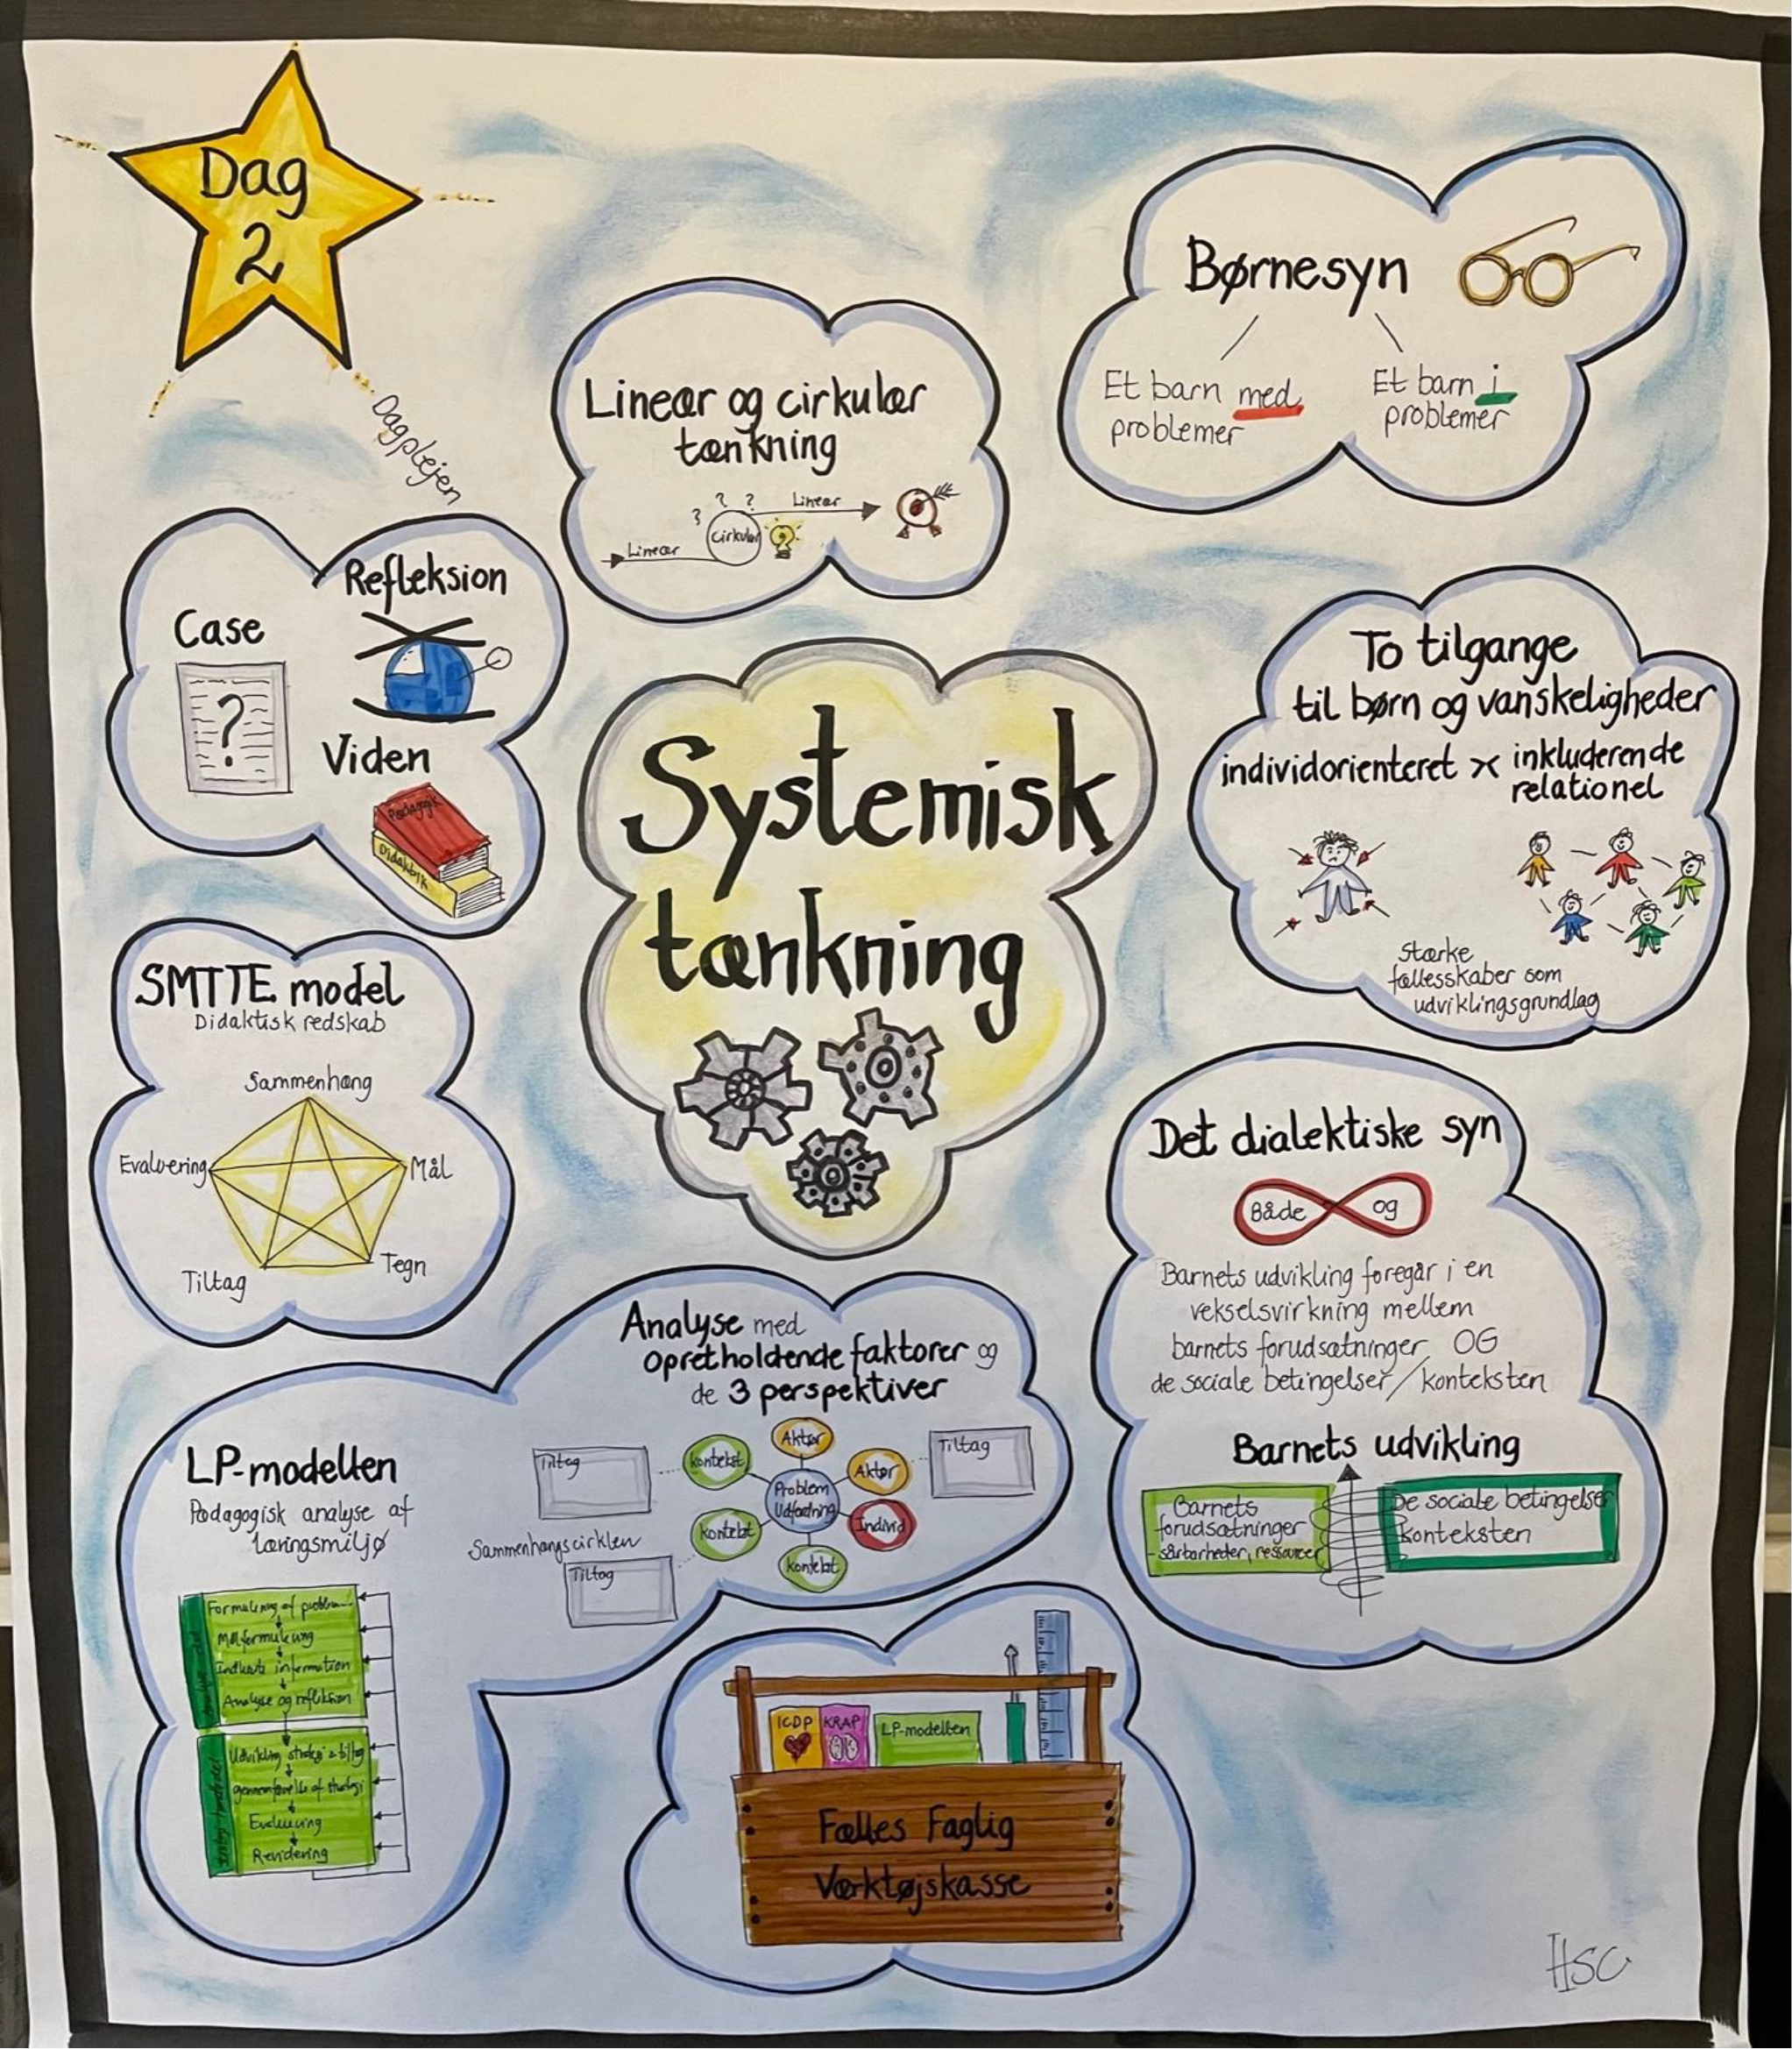 Dag
2
Dagplejen
Lineær og cirkulær
tænkning
? ? ?
Lineær
Cirkulær
Lineær
Børnesyn
Et barn med
problemer
Et barn i
problemer
Refleksion
Case
?
Viden
Pædagogik
Didaktik
Systemisk
tænkning
To tilgange
til børn og vanskeligheder
individorienteret
inkluderende
relationel
Stærke
fællesskaber som
udviklingsgrundlag
SMTTE model
Didaktisk redskab
Sammenhæng
Evaluering
Mål
Tiltag
Tegn
Det dialektiske syn
Både og
Barnets udvikling foregår i en
vekselsvirkning mellem
barnets forudsætninger OG
de sociale betingelser/konteksten
Barnets udvikling
Barnets
forudsætninger
- sårbarheder, ressourcer
De sociale betingelser
konteksten
Analyse med
opretholdende faktorer og
de 3 perspektiver
Tiltag
kontekst
Aktør
Aktør
Tiltag
Problem
Udfordring
kontekst
Individ
kontekst
Sammenhængscirklen
Tiltag
LP-modellen
Pædagogisk analyse af
læringsmiljø
Formulering af problem
Målformulering
Indhente information
Analyse og refleksion
Udvikling strategi + tiltag
gennemførelse af strategi
Evaluering
Revidering
ICDP
KRAP
LP-modellen
Fælles Faglig
Værktøjskasse
HSC